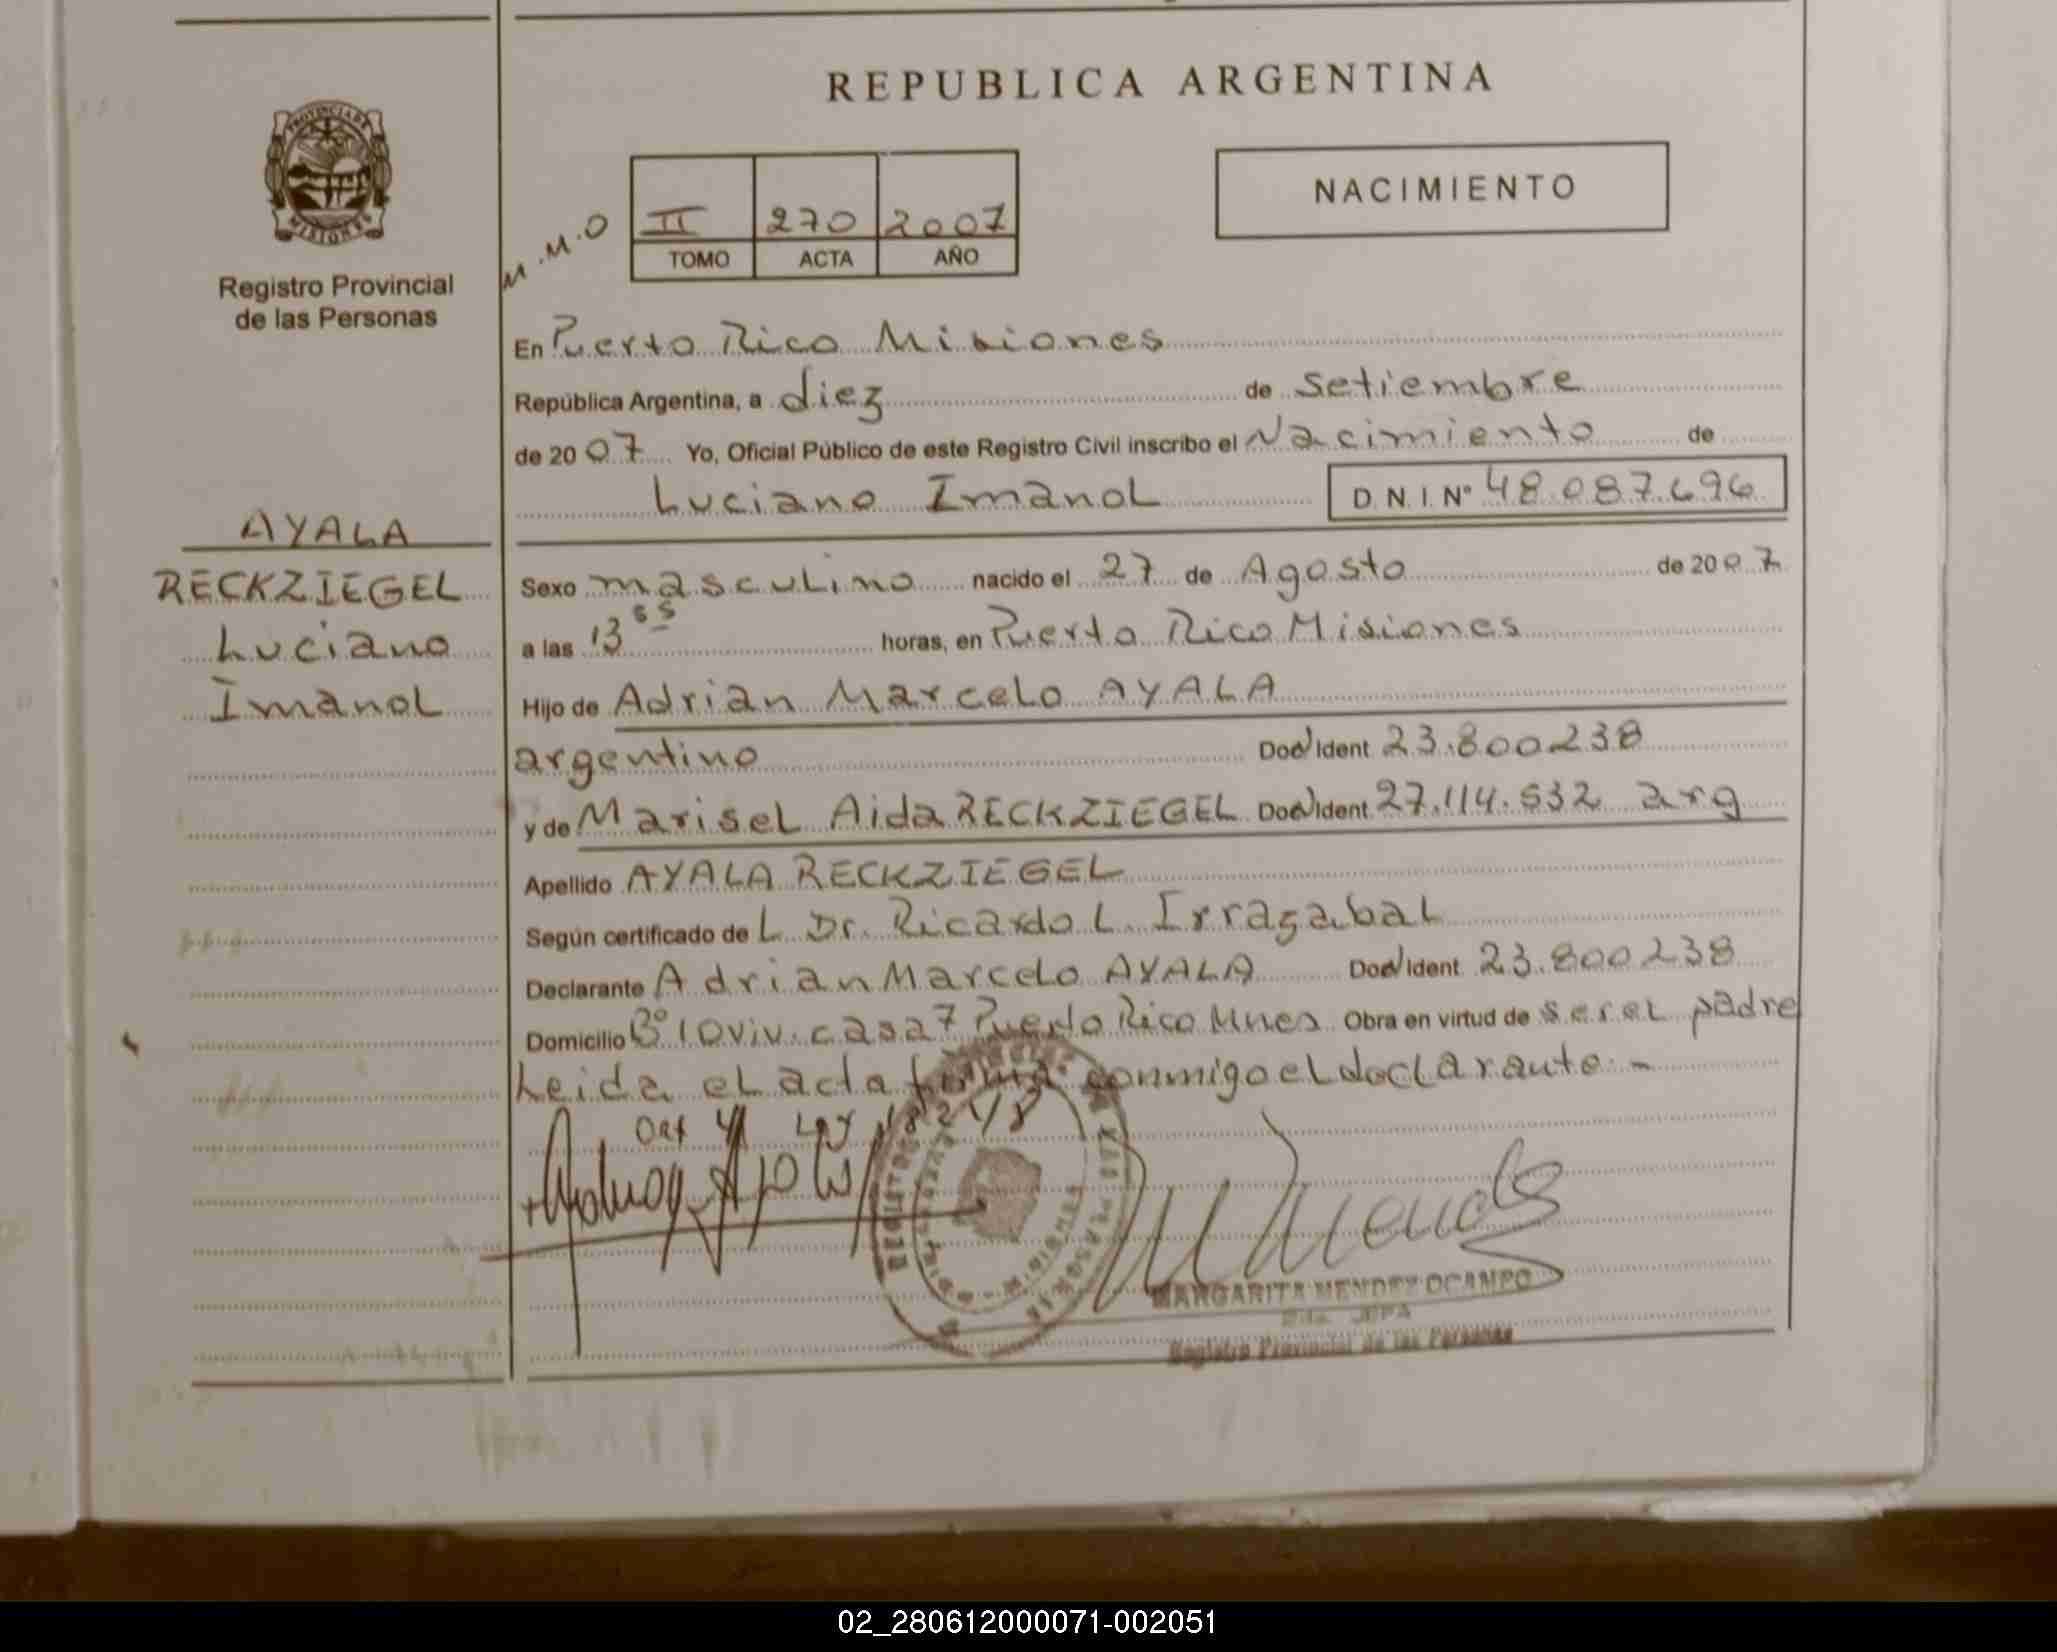 REPUBLICA ARGENTINA
PROVINCIA DE
MISIONES
Registro Provincial
de las Personas
M.M.O
II 270 2007
TOMO ACTA AÑO
NACIMIENTO
En Puerto Rico Misiones
República Argentina, a diez de setiembre
de 2007 Yo, Oficial Público de este Registro Civil inscribo el Nacimiento de
Luciano Imanol D.N.I. Nº 48.087.696
AYALA
RECKZIEGEL
Luciano
Imanol
Sexo masculino nacido el 27 de Agosto de 2007
a las 13 horas, en Puerto Rico Misiones
Hijo de Adrian Marcelo AYALA
argentino Doc/Ident 23.800238
y de Marisel Aida RECKZIEGEL Doc/Ident 27.114.532 arg
Apellido AYALA RECKZIEGEL
Según certificado de L Dr. Ricardo L. Irragabal
Declarante Adrian Marcelo AYALA Doc/Ident 23.800238
Domicilio Bº 10 viv. casa 7 Puerto Rico Mnes Obra en virtud de ser el padre
Leida el acta firma conmigo el declarante.-
MARGARITA MENDEZ OCAMPO
Registro Provincial de las Personas
02_280612000071-002051